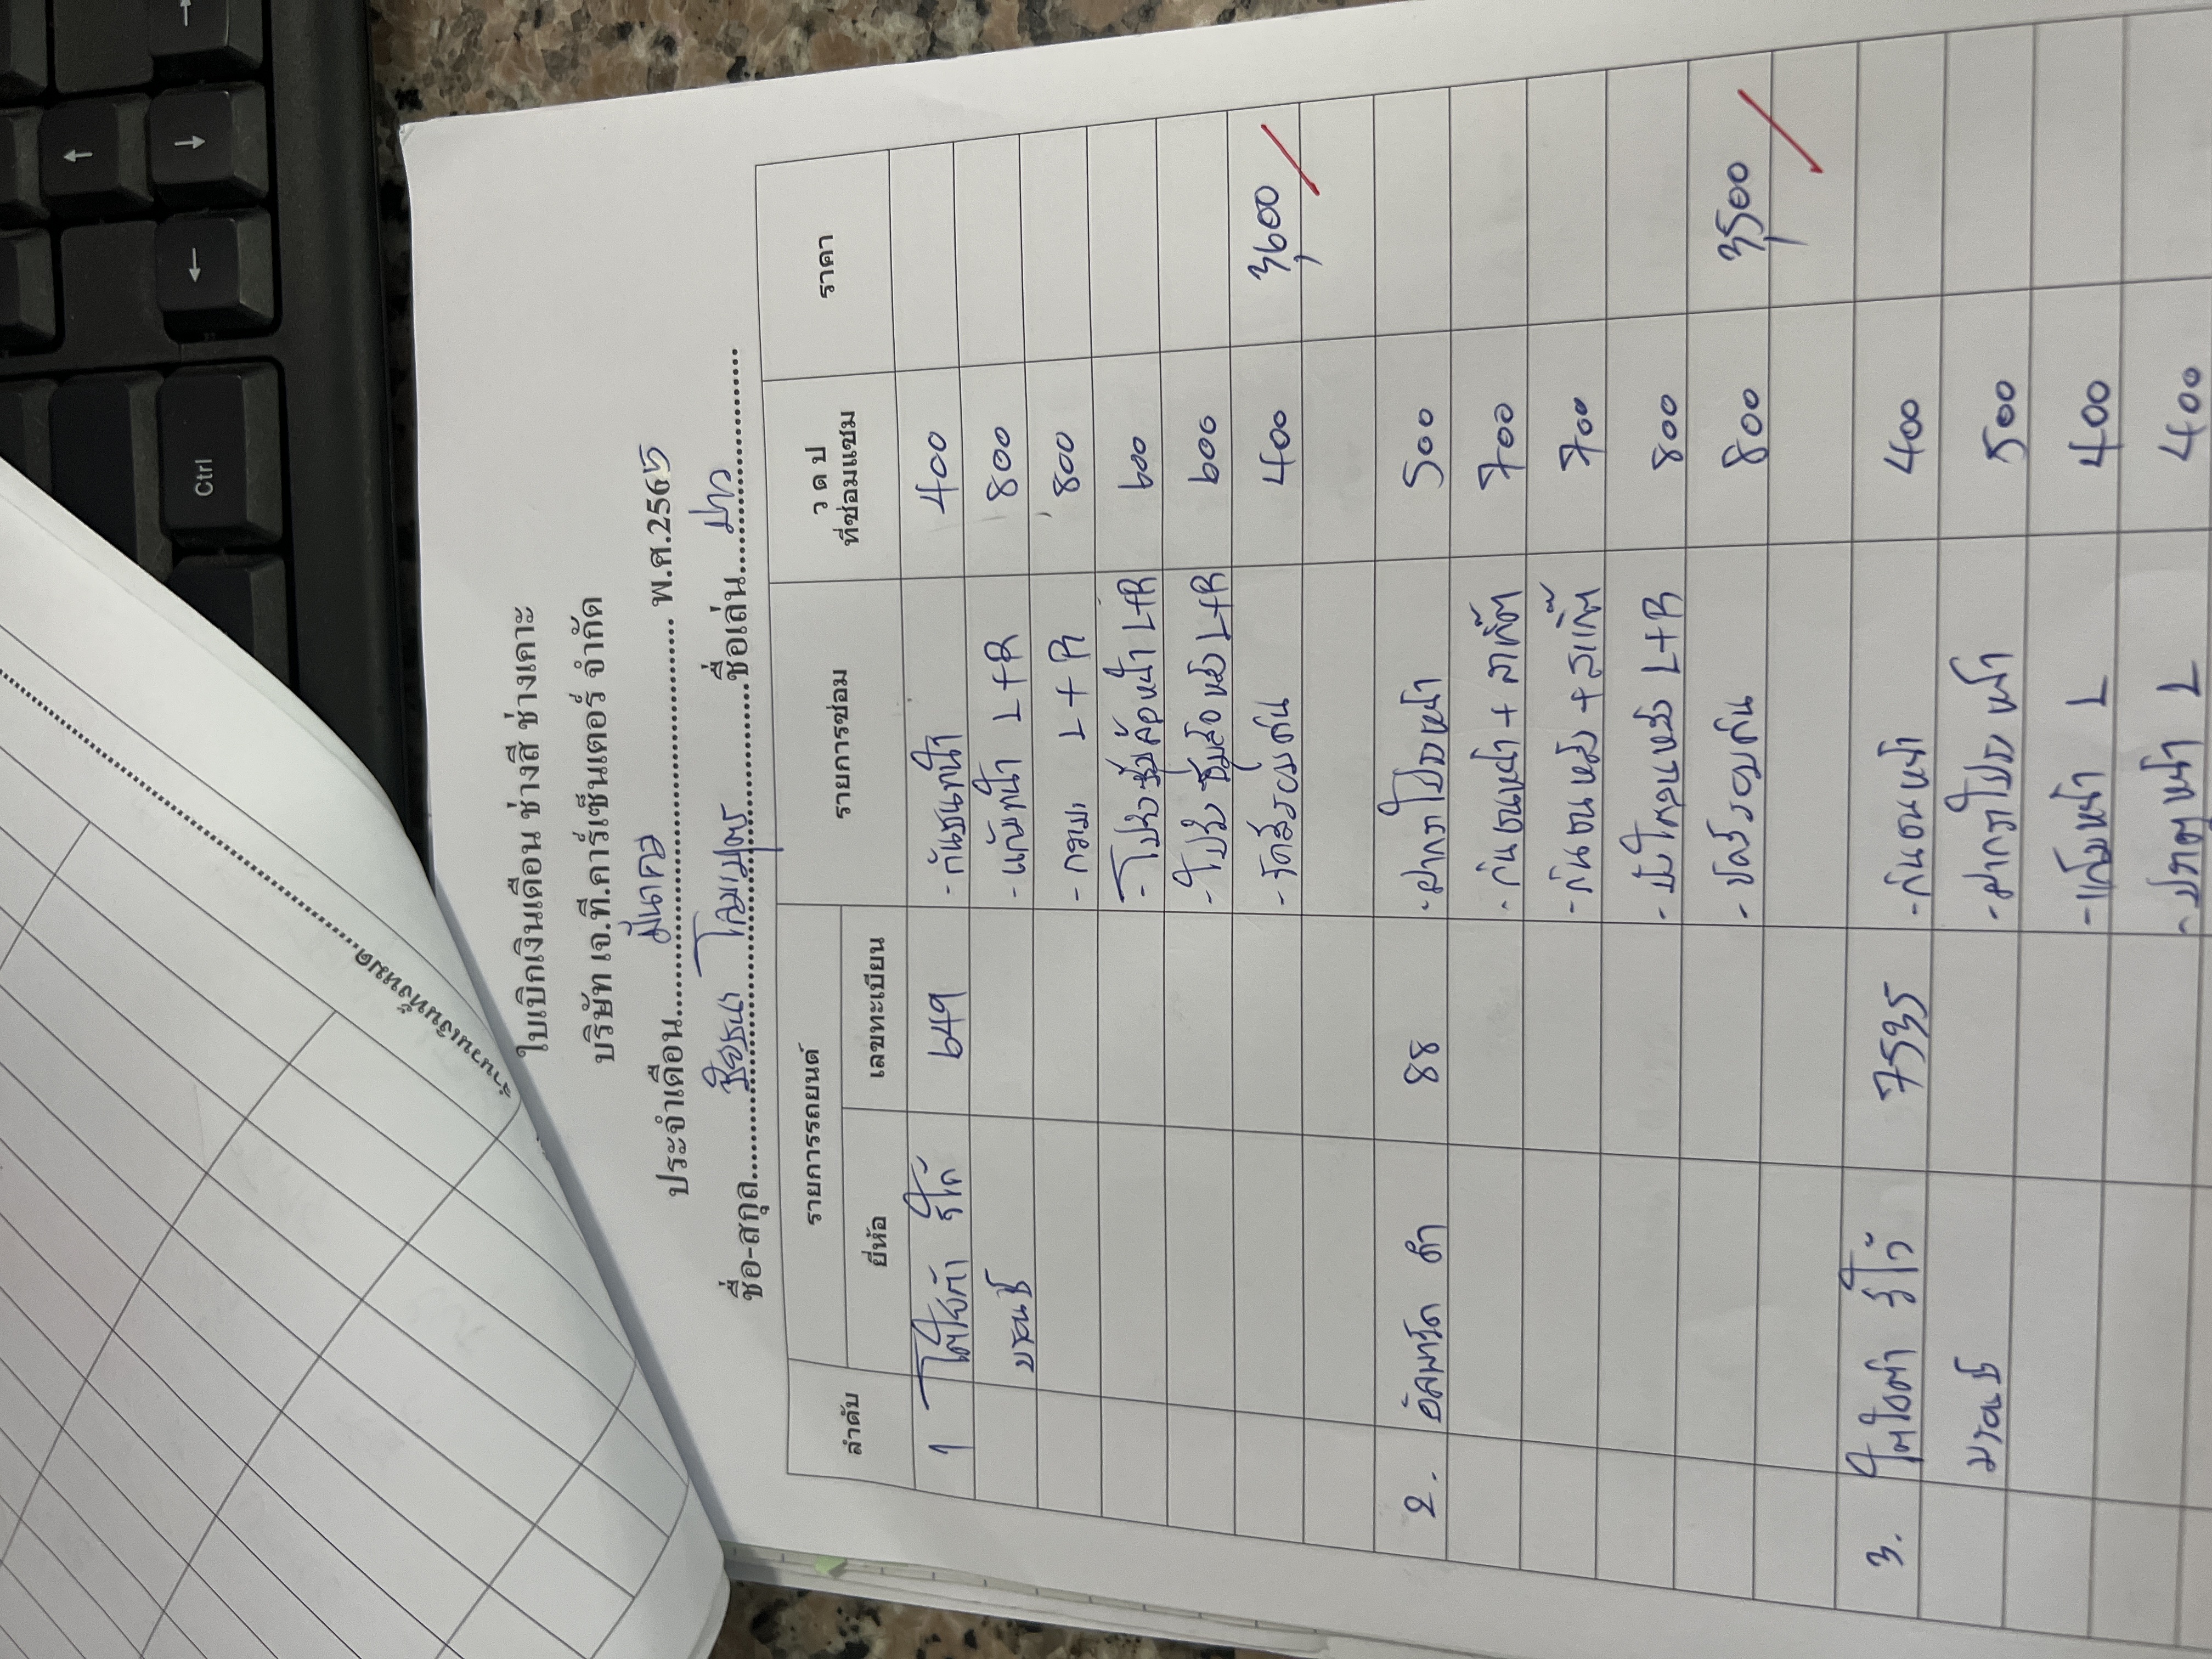 Ctrl
จำนวนเงินทั้งหมด
ใบเบิกเงินเดือน ช่างสี ช่างเคาะ
บริษัท เจ.ที.คาร์เซ็นเตอร์ จำกัด
ประจำเดือน มีนาคม พ.ศ.2565
ชื่อ-สกุล ชื่อเล่น
ลำดับ รายการรถยนต์ รายการซ่อม ว ด ป ที่ซ่อมแซม ราคา
ยี่ห้อ เลขทะเบียน
1 โตโยต้า รีโว้ 649 - กันชนหน้า 400
บรอนซ์ - แก้มหน้า L+R 800
L + R 800
- โป่งซุ้มล้อหน้า L+R 600
- โป่ง ซุ้มล้อ หลัง L+R 600
- รอบคัน 400 3,600
2. อัลพาร์ด ดำ 88 - ฝากระโปรงหน้า 500
- กันชนหน้า + สเกิ๊ต 700
- กันชนหลัง + สเกิ๊ต 700
- บังโคลนหลัง L+R 800
- รอบคัน 800 3,500
3. โตโยต้า รีโว้ 7535 - กันชนหน้า 400
บรอนซ์ - ฝากระโปรง หน้า 500
- แก้มหน้า L 400
- ประตูหน้า L 400